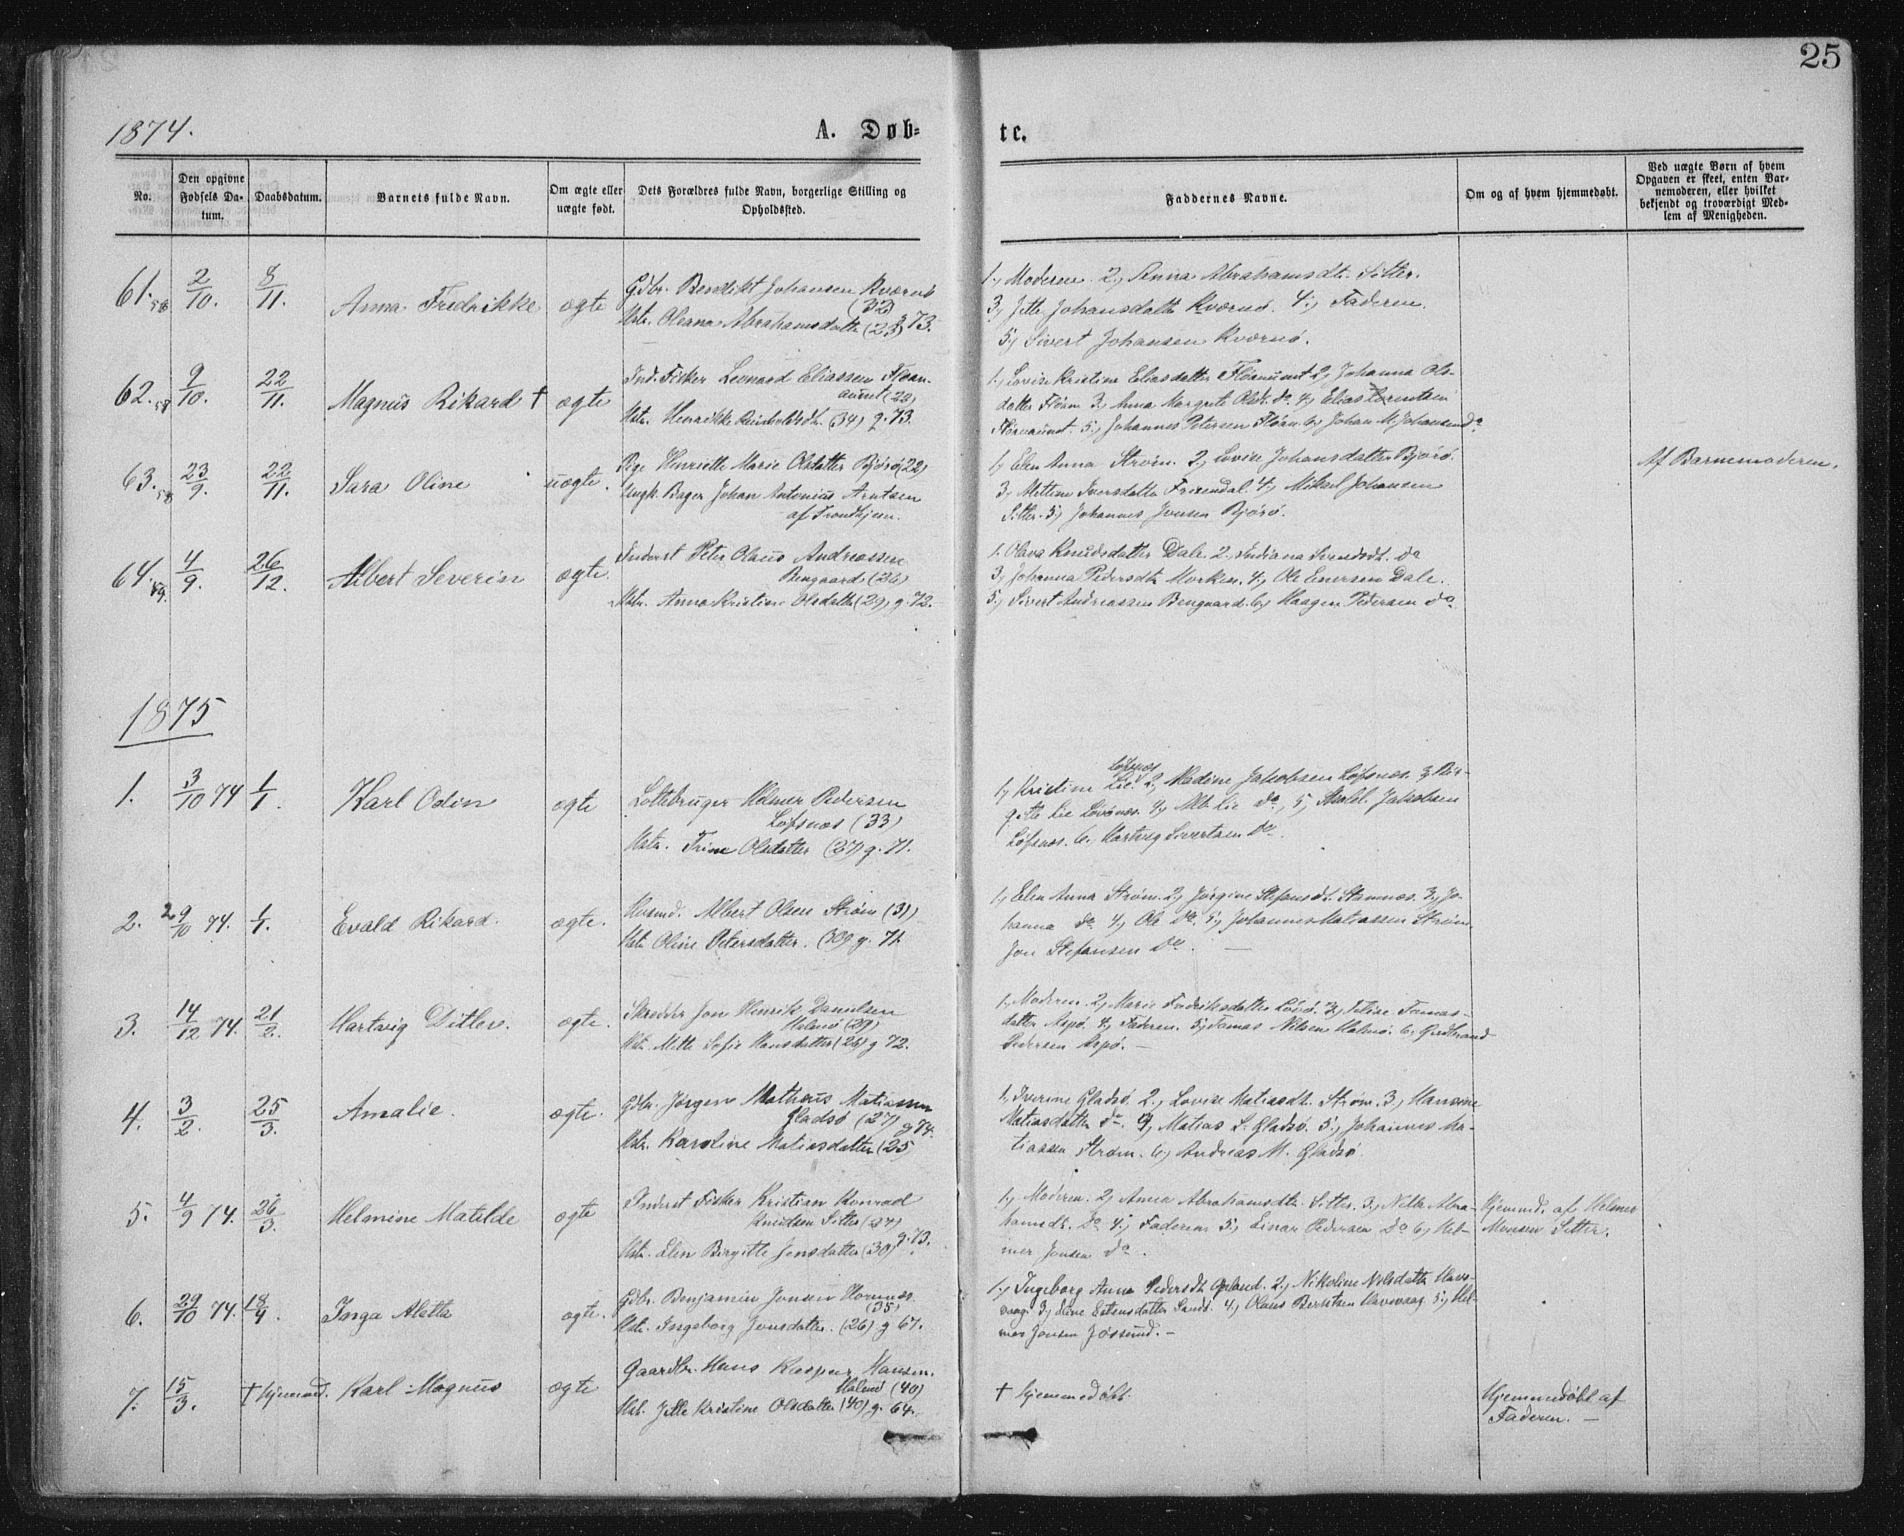 25
1874.
A. Døb-
te.
No.
Den opgivne Fødsels Da-tum.
Daabsdatum.
Barnets fulde Navn.
Om ægte eller uægte født.
Dets Forældres fulde Navn, borgerlige Stilling og Opholdssted.
Faddernes Navne.
Om og af hvem hjemmedøbt.
Ved uægte Børn af hvem Opgaven er skeet, enten Bar-nemoderen, eller hvilket bekjendt og troværdigt Med-lem af Menigheden.
61. 2/10. 8/11. Anna Fredrikke ægte
Gdbr. Benedikt Johansen Kvernø
(32)
Hstr. Oleana Abrahamsdatter (23) g. 73.
1, Moderen 2, Anna Abrahamsdt. Sitter.
3, Jette Johansdatter Kvernø. 4, Faderen.
5, Sivert Johansen Kvernø.
62. 9/10. 22/11. Magnus Rikard † ægte
Ind. Fisker Leonard Eliassen Fløan-
aunet (22)
Hstr. Henrikke Reinholdsdt. (34) g. 73.
1, Lovise Kristine Eliasdatter Fløanunet 2, Johanna Ols-
datter Fløan 3, Anna Margrete Olsdt. do 4, Elias Lorentsen
5, Johannes Petersen Fløan. 6, Johan M. Johansen do
63. 23/9. 22/11. Sara Oline uægte.
Pige Henriette Marie Olsdatter Bjørø (22)
Ungk. Bager Johan Antonius Arntsen
af Trondhjem.
1, Elen Anna Strøm. 2, Lovise Johansdatter Bjørø.
3, Mettine Iversdatter 4, Mikael Johansen
Sitter. 5, Johannes Iversen Bjørø.
Af Barnemoderen.
64. 4/9. 26/12. Albert Severin ægte.
Inderst Peter Olaus Andreassen
Bengaard (26)
Hstr. Anna Kristine Olsdatter (29) g. 72.
1. Olava Knudsdatter Dale 2, do
3, Johanna Pedersdt. Morken. 4, Ole Enersen Dale.
5, Sivert Andreassen Bengaard. 6, Haagen Pedersen do
1875
1. 3/10 74 1/1. Karl Odin ægte
Lottebruger Helmer Pedersen
Løfsnæs (33)
Hstr. Trine Olsdatter (37) g. 71.
Løfsnæs
1, Kristine Lie. 2, Madine Jakobsen Løfsnæs. 3, Bir-
gitte Lie Løvsnæs. 4, Alb. Lie do, 5, Jakobsen
Løfsnæs. 6, Hartvig Sivertsen Do.
2. 29/10 74. 1/1. Evald Rikard. ægte.
Husmd. Albert Olsen Strøm (31)
Hstr. Oline Petersdatter. (30) g. 71.
1, Elen Anna Strøm. 2, Jørgine Stefansdt. Stamnæs. 3, Jo-
hanna do 4, Ole Do. 5, Johannes Matiassen Strøm.
Jon Stefansen Do.
3. 14/12 74. 21/2. Hartvig Ditlev. ægte.
Skredder Jon Henrik Danielsen
Halmø (29)
Hstr. Mette Sofie Hansdatter (26) g 72.
1, Moderen. 2, Marie Fredriksdatter 3, Tomas-
datter Aspø. 4, Faderen. 5, Tomas Nilsen Halmø. 6, Gudbrand
Pedersen Aspø. –
4. 3/2. 25/3. Amalie. ægte.
Gdbr. Jørgen Matheus Matiassen
Gladsø (27)
g 74.
Hstr. Karoline Matiasdatter (25)
1, Iverine Gladsø. 2, Lovise Matiasdt. Strøm. 3, Hansine
Matiasdatter do. 4, Matias L. Gladsø. 5, Johannes Ma-
tiassen Strøm. 6, Andreas M. Gladsø
5. 4/9 74. 26/3. Helmine Matilde ægte
Inderst Fisker Kristian Konrad
Knudsen Sitter (27)
g. 73.
Hstr. Elen Birgitte Jensdatter (30)
1, Moderen. 2, Anna Abrahamsdt. Sitter. 3, Abra-
hamsdt. Do 4, Faderen 5, Einar Pedersen Do 6, Hel-
mer Jensen do.
Hjemmd. af Helmer
Monsen Sitter.
6. 29/10 74. 18/4. Inga Aletta ægte.
Gdbr. Benjamin Jonsen Homnæs
(35)
Hstr. Ingeborg Jensdatter. (26) g 67.
1, Ingeborg Anna Pedersdt. Opland. 2, Nikoline Nilsdatter Havs-
vaag. 3, Estensdatter Sands. 4, Olaus Berntsen Havsvaag. 5, Hel-
mer Jensen Jøssund. –
7. 15/3. † hjemmed. Karl Magnus ægte
Gaardbr. Hans Kasper Hansen.
Halmø (40)
Hstr. Jette Kristine Olsdatter (40) g. 64.
† hjemmedøbt.
Hjemmedøbt af
Faderen. –